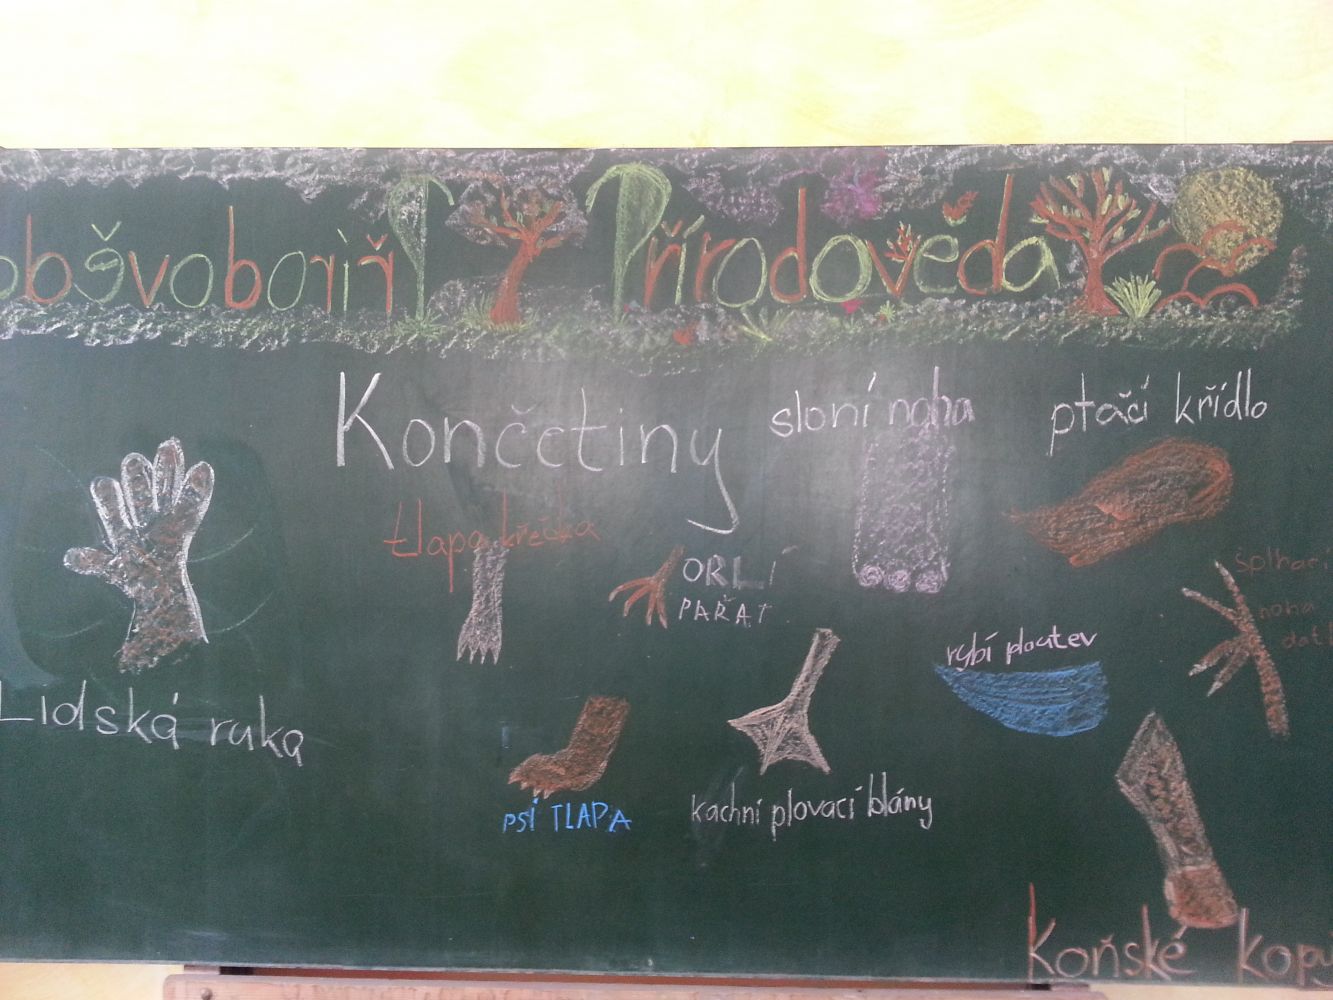 Přírodověda
Končetiny
sloní noha
ptačí křídlo
tlapa křečka
ORLÍ
PAŘÁT
šplhací
noha
rybí ploutev
Lidská ruka
PSÍ TLAPA
kachní plovací blány
Koňské